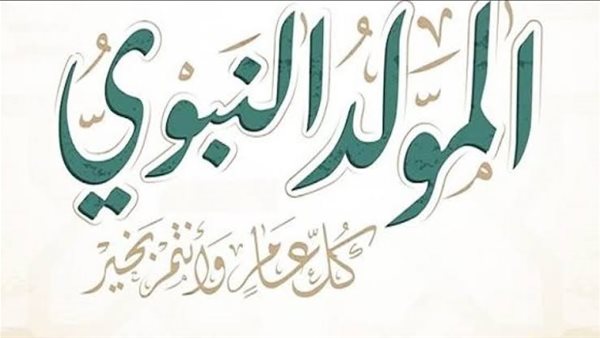 المَوْلدُ النَبَويُّ
كُلُّ عَامٍ وَأَنتُمْ بِخَيْرٍ